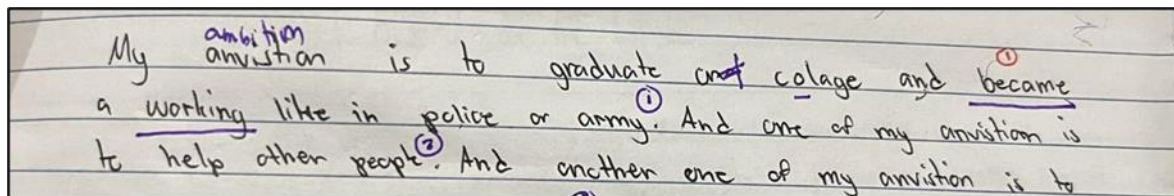 ambition
My anvistion is to graduate colage and became ①
a working like in police or army. ① And one of my anvistion is
to help other people ②. And another one of my anvistion is to